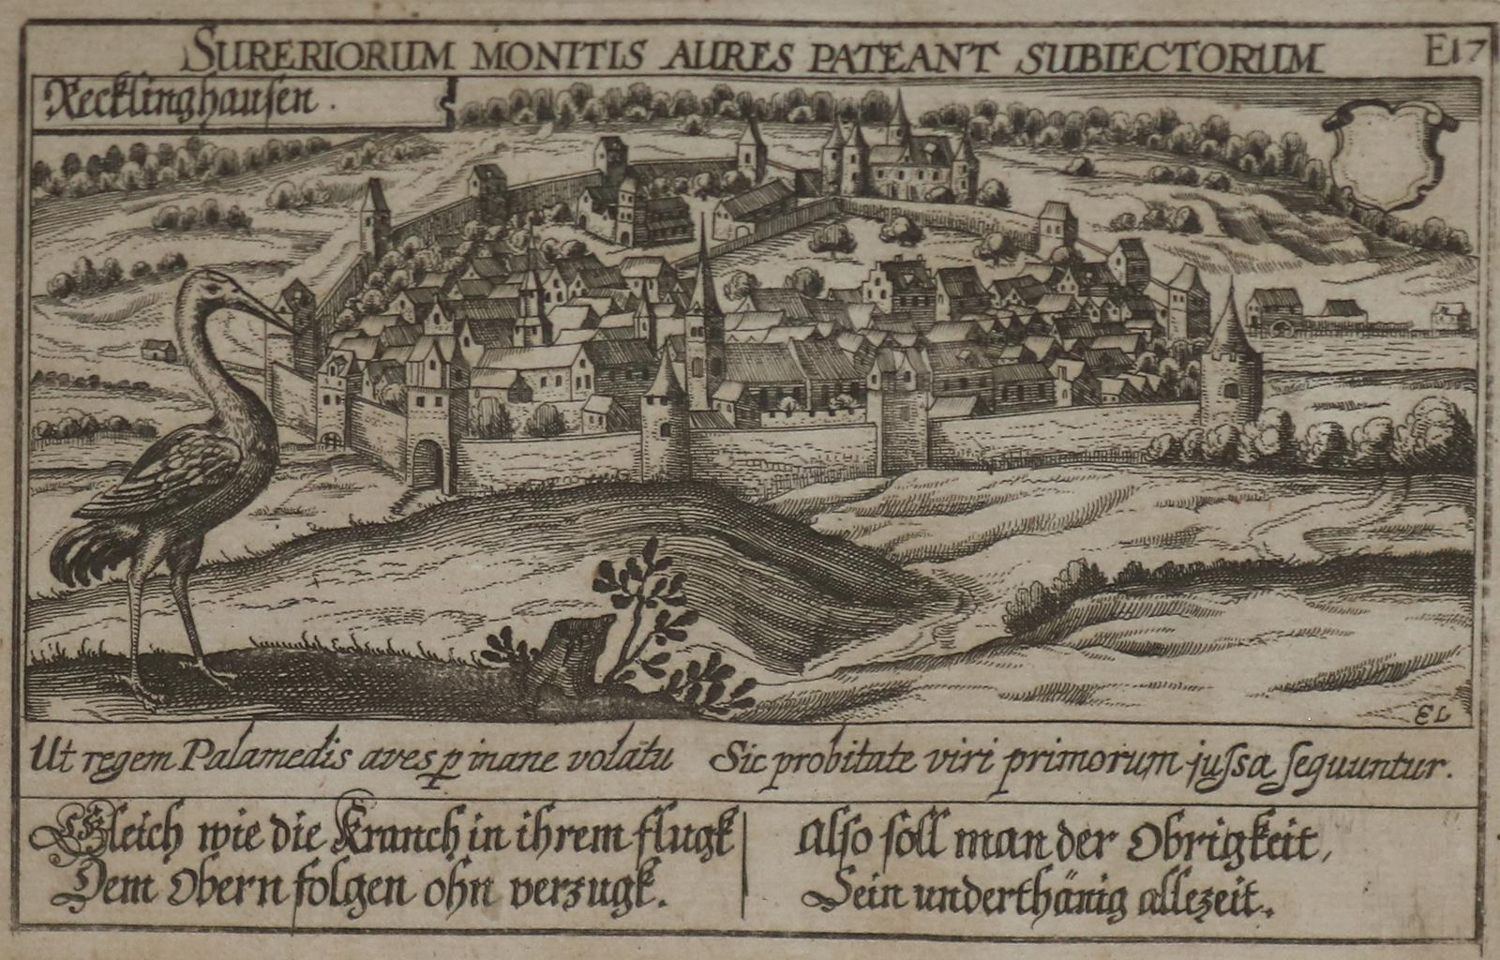 SURERIORUM MONITIS AURES PATEANT SUBIECTORUM
E17
Recklinghausen.
EL
Ut regem Palamedis aves p inane volatu Sic probitate viri primorum jussa sequuntur.
Gleich wie die Kranch in ihrem flugk
Dem Obern folgen ohn verzugk.
Also soll man der Obrigkeit,
Sein underthänig allezeit.